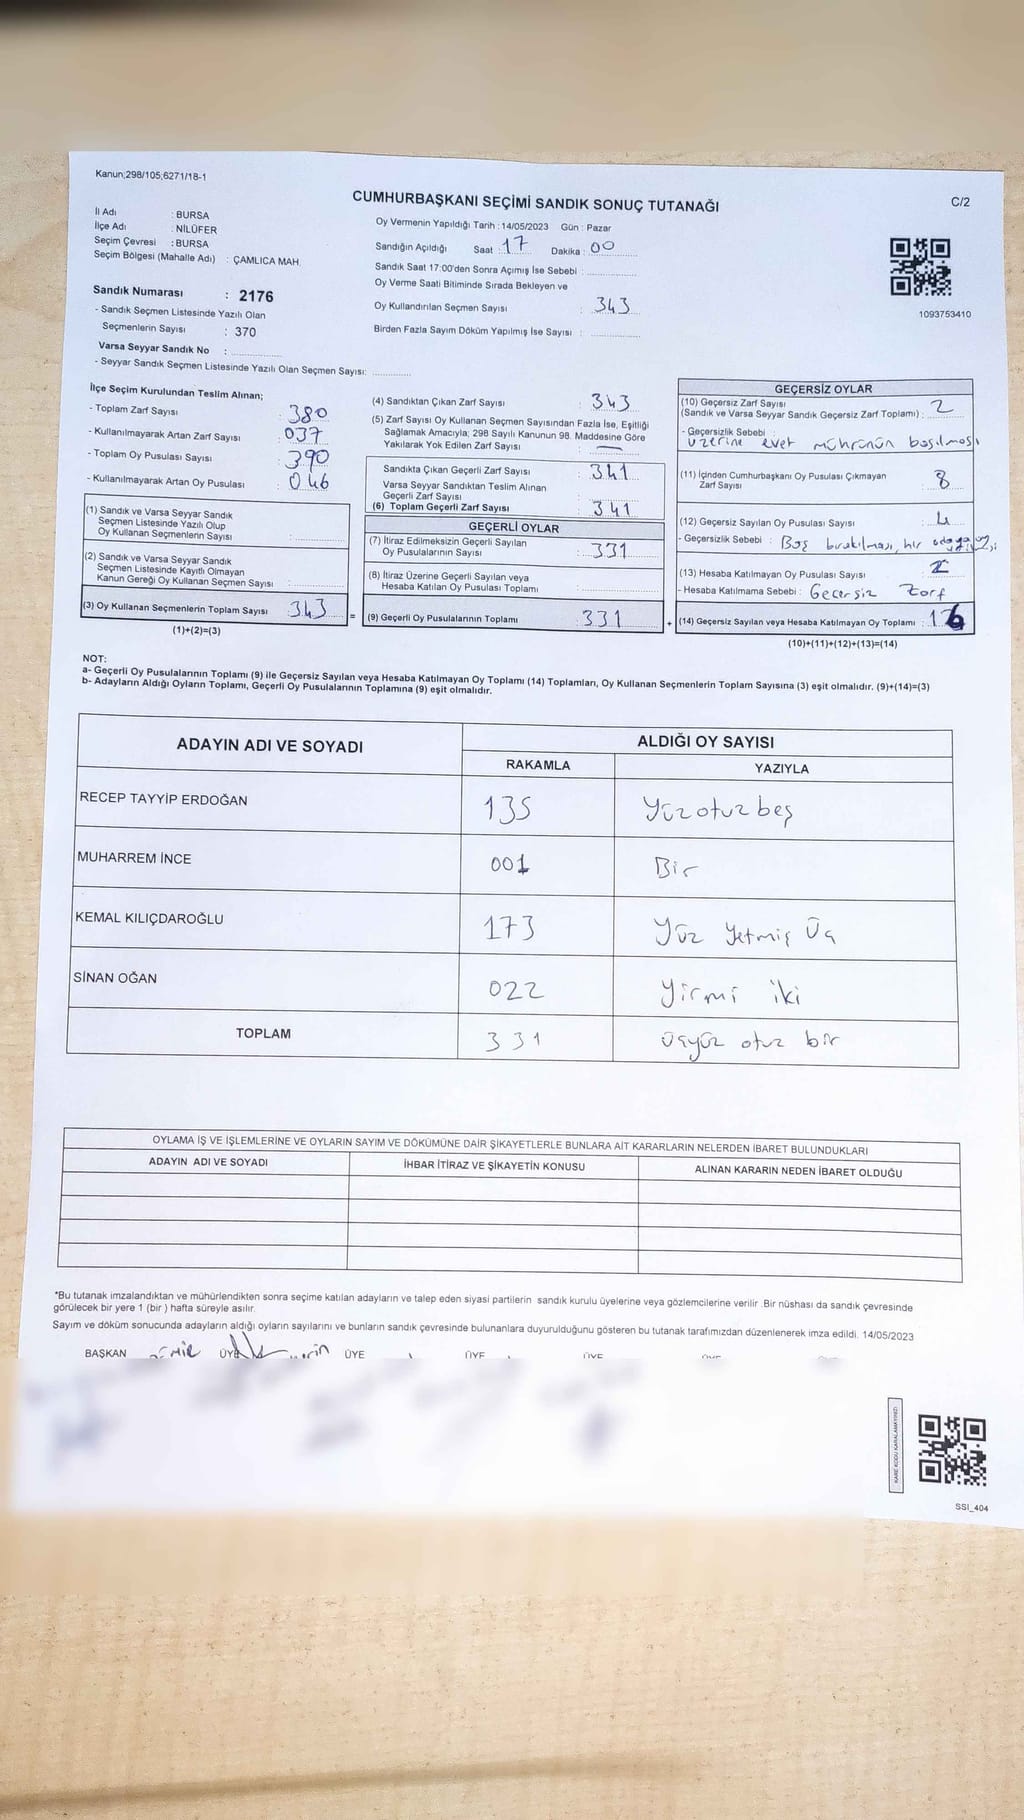 Kanun;298/105;6271/18-1
CUMHURBAŞKANI SEÇİMİ SANDIK SONUÇ TUTANAĞI
C/2
İl Adı : BURSA
İlçe Adı : NİLÜFER
Seçim Çevresi : BURSA
Seçim Bölgesi (Mahalle Adı) : ÇAMLICA MAH.
Sandık Numarası : 2176
- Sandık Seçmen Listesinde Yazılı Olan
Seçmenlerin Sayısı : 370
Varsa Seyyar Sandık No :
- Seyyar Sandık Seçmen Listesinde Yazılı Olan Seçmen Sayısı:
Oy Vermenin Yapıldığı Tarih : 14/05/2023 Gün : Pazar
Sandığın Açıldığı Saat : 17 Dakika : 00
Sandık Saat 17:00'den Sonra Açımış İse Sebebi :
Oy Verme Saati Bitiminde Sırada Bekleyen ve
Oy Kullandırılan Seçmen Sayısı : 343
Birden Fazla Sayım Döküm Yapılmış İse Sayısı :
1093753410
İlçe Seçim Kurulundan Teslim Alınan;
- Toplam Zarf Sayısı : 380
- Kullanılmayarak Artan Zarf Sayısı : 037
- Toplam Oy Pusulası Sayısı : 390
- Kullanılmayarak Artan Oy Pusulası : 046
(1) Sandık ve Varsa Seyyar Sandık
Seçmen Listesinde Yazılı Olup
Oy Kullanan Seçmenlerin Sayısı :
(2) Sandık ve Varsa Seyyar Sandık
Seçmen Listesinde Kayıtlı Olmayan
Kanun Gereği Oy Kullanan Seçmen Sayısı :
(3) Oy Kullanan Seçmenlerin Toplam Sayısı : 343
(1)+(2)=(3)
(4) Sandıktan Çıkan Zarf Sayısı : 343
(5) Zarf Sayısı Oy Kullanan Seçmen Sayısından Fazla İse, Eşitliği
Sağlamak Amacıyla; 298 Sayılı Kanunun 98. Maddesine Göre
Yakılarak Yok Edilen Zarf Sayısı : —
Sandıkta Çıkan Geçerli Zarf Sayısı : 341
Varsa Seyyar Sandıktan Teslim Alınan
Geçerli Zarf Sayısı :
(6) Toplam Geçerli Zarf Sayısı : 341
GEÇERLİ OYLAR
(7) İtiraz Edilmeksizin Geçerli Sayılan
Oy Pusulalarının Sayısı : 331
(8) İtiraz Üzerine Geçerli Sayılan veya
Hesaba Katılan Oy Pusulası Toplamı :
= (9) Geçerli Oy Pusulalarının Toplamı : 331 +
GEÇERSİZ OYLAR
(10) Geçersiz Zarf Sayısı
(Sandık ve Varsa Seyyar Sandık Geçersiz Zarf Toplamı) : 2
- Geçersizlik Sebebi :
üzerine evet mührünün basılması
(11) İçinden Cumhurbaşkanı Oy Pusulası Çıkmayan
Zarf Sayısı : 8
(12) Geçersiz Sayılan Oy Pusulası Sayısı : 4
- Geçersizlik Sebebi : Boş bırakılması,
(13) Hesaba Katılmayan Oy Pusulası Sayısı :
- Hesaba Katılmama Sebebi : Geçersiz Zarf
(14) Geçersiz Sayılan veya Hesaba Katılmayan Oy Toplamı :
(10)+(11)+(12)+(13)=(14)
NOT:
a- Geçerli Oy Pusulalarının Toplamı (9) ile Geçersiz Sayılan veya Hesaba Katılmayan Oy Toplamı (14) Toplamları, Oy Kullanan Seçmenlerin Toplam Sayısına (3) eşit olmalıdır. (9)+(14)=(3)
b- Adayların Aldığı Oyların Toplamı, Geçerli Oy Pusulalarının Toplamına (9) eşit olmalıdır.
ADAYIN ADI VE SOYADI
ALDIĞI OY SAYISI
RAKAMLA YAZIYLA
RECEP TAYYİP ERDOĞAN 135 Yüzotuzbeş
MUHARREM İNCE 001 Bir
KEMAL KILIÇDAROĞLU 173 Yüz Yetmiş Üç
SİNAN OĞAN 022 Yirmi iki
TOPLAM 331 üçyüz otuz bir
OYLAMA İŞ VE İŞLEMLERİNE VE OYLARIN SAYIM VE DÖKÜMÜNE DAİR ŞİKAYETLERLE BUNLARA AİT KARARLARIN NELERDEN İBARET BULUNDUKLARI
ADAYIN ADI VE SOYADI İHBAR İTİRAZ VE ŞİKAYETİN KONUSU ALINAN KARARIN NEDEN İBARET OLDUĞU
*Bu tutanak imzalandıktan ve mühürlendikten sonra seçime katılan adayların ve talep eden siyasi partilerin sandık kurulu üyelerine veya gözlemcilerine verilir .Bir nüshası da sandık çevresinde
görülecek bir yere 1 (bir ) hafta süreyle asılır.
Sayım ve döküm sonucunda adayların aldığı oyların sayılarını ve bunların sandık çevresinde bulunanlara duyurulduğunu gösteren bu tutanak tarafımızdan düzenlenerek imza edildi. 14/05/2023
BAŞKAN ÜYE ÜYE ÜYE ÜYE
KARE KODU KARALAMAYINIZ!
SSI_404